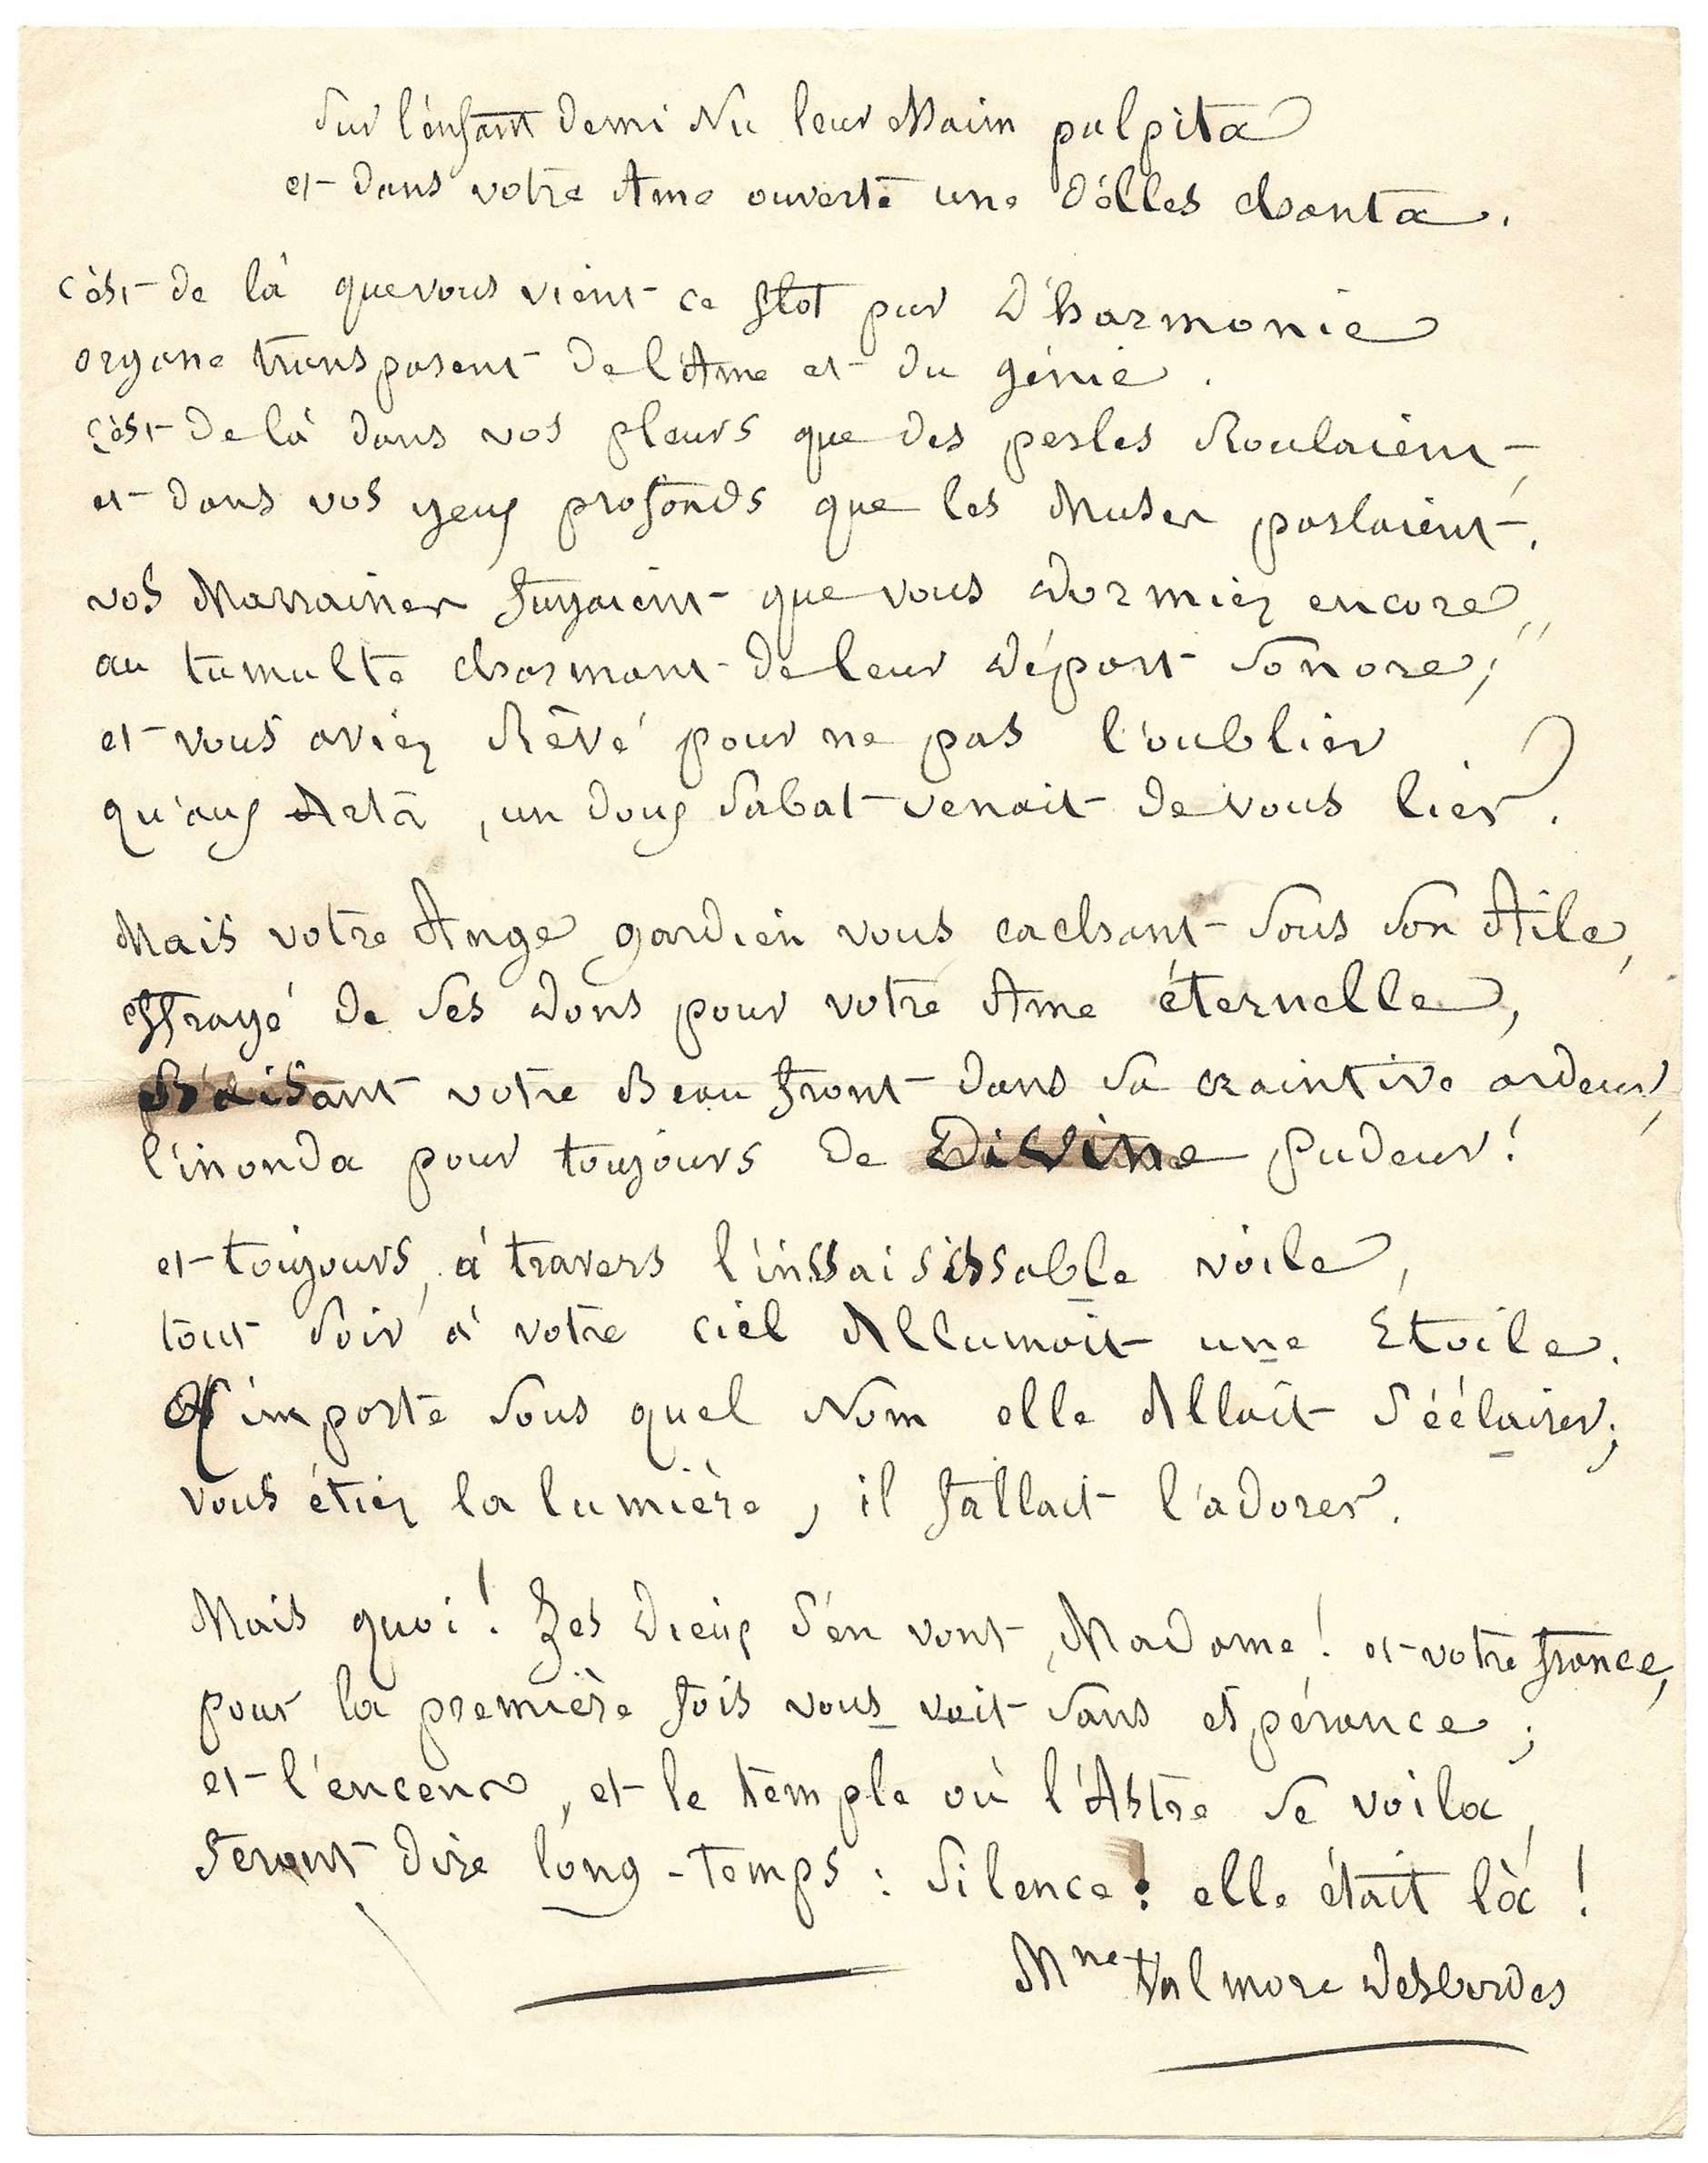 Sur l'énfant demi Nu leur Main palpita
et dans votre Ame ouverte une d'élles chanta.
c'ést de là que vous vient ce flot pur D'harmonie
organe transparent de l'Ame et du génie.
c'ést de là dans vos pleurs que des perles Roulaient,
et dans vos yeux profonds que les Muses parlaient.
vos Marraines fuyaient que vous dormiez encore,
au tumulte charmant de leur départ Sonore;
et vous aviez Rêvé pour ne pas l'oublier
qu'aux Arts, un doux Sabat venait de vous lier.
Mais votre Ange gardien vous cachant Sous Son Aile,
effrayé de Ses dons pour votre Ame éternelle,
Baisant votre Beau front dans Sa craintive ardeur,
l'inonda pour toujours de Divine Pudeur!
et toujours, à travers l'inssaisissable voile,
tout Soir à votre ciel Allumait une Etoile.
N'importe Sous quel Nom elle Allait S'éclairer;
vous étiez la lumière, il fallait l'adorer.
Mais quoi! Les Dieux S'én vont, Madame! et votre france,
pour la première fois vous voit Sans espérance;
et l'encens, et le temple où l'Astre Se voila,
feront dire long-temps: Silence! elle était là!
Mme Valmore Desbordes